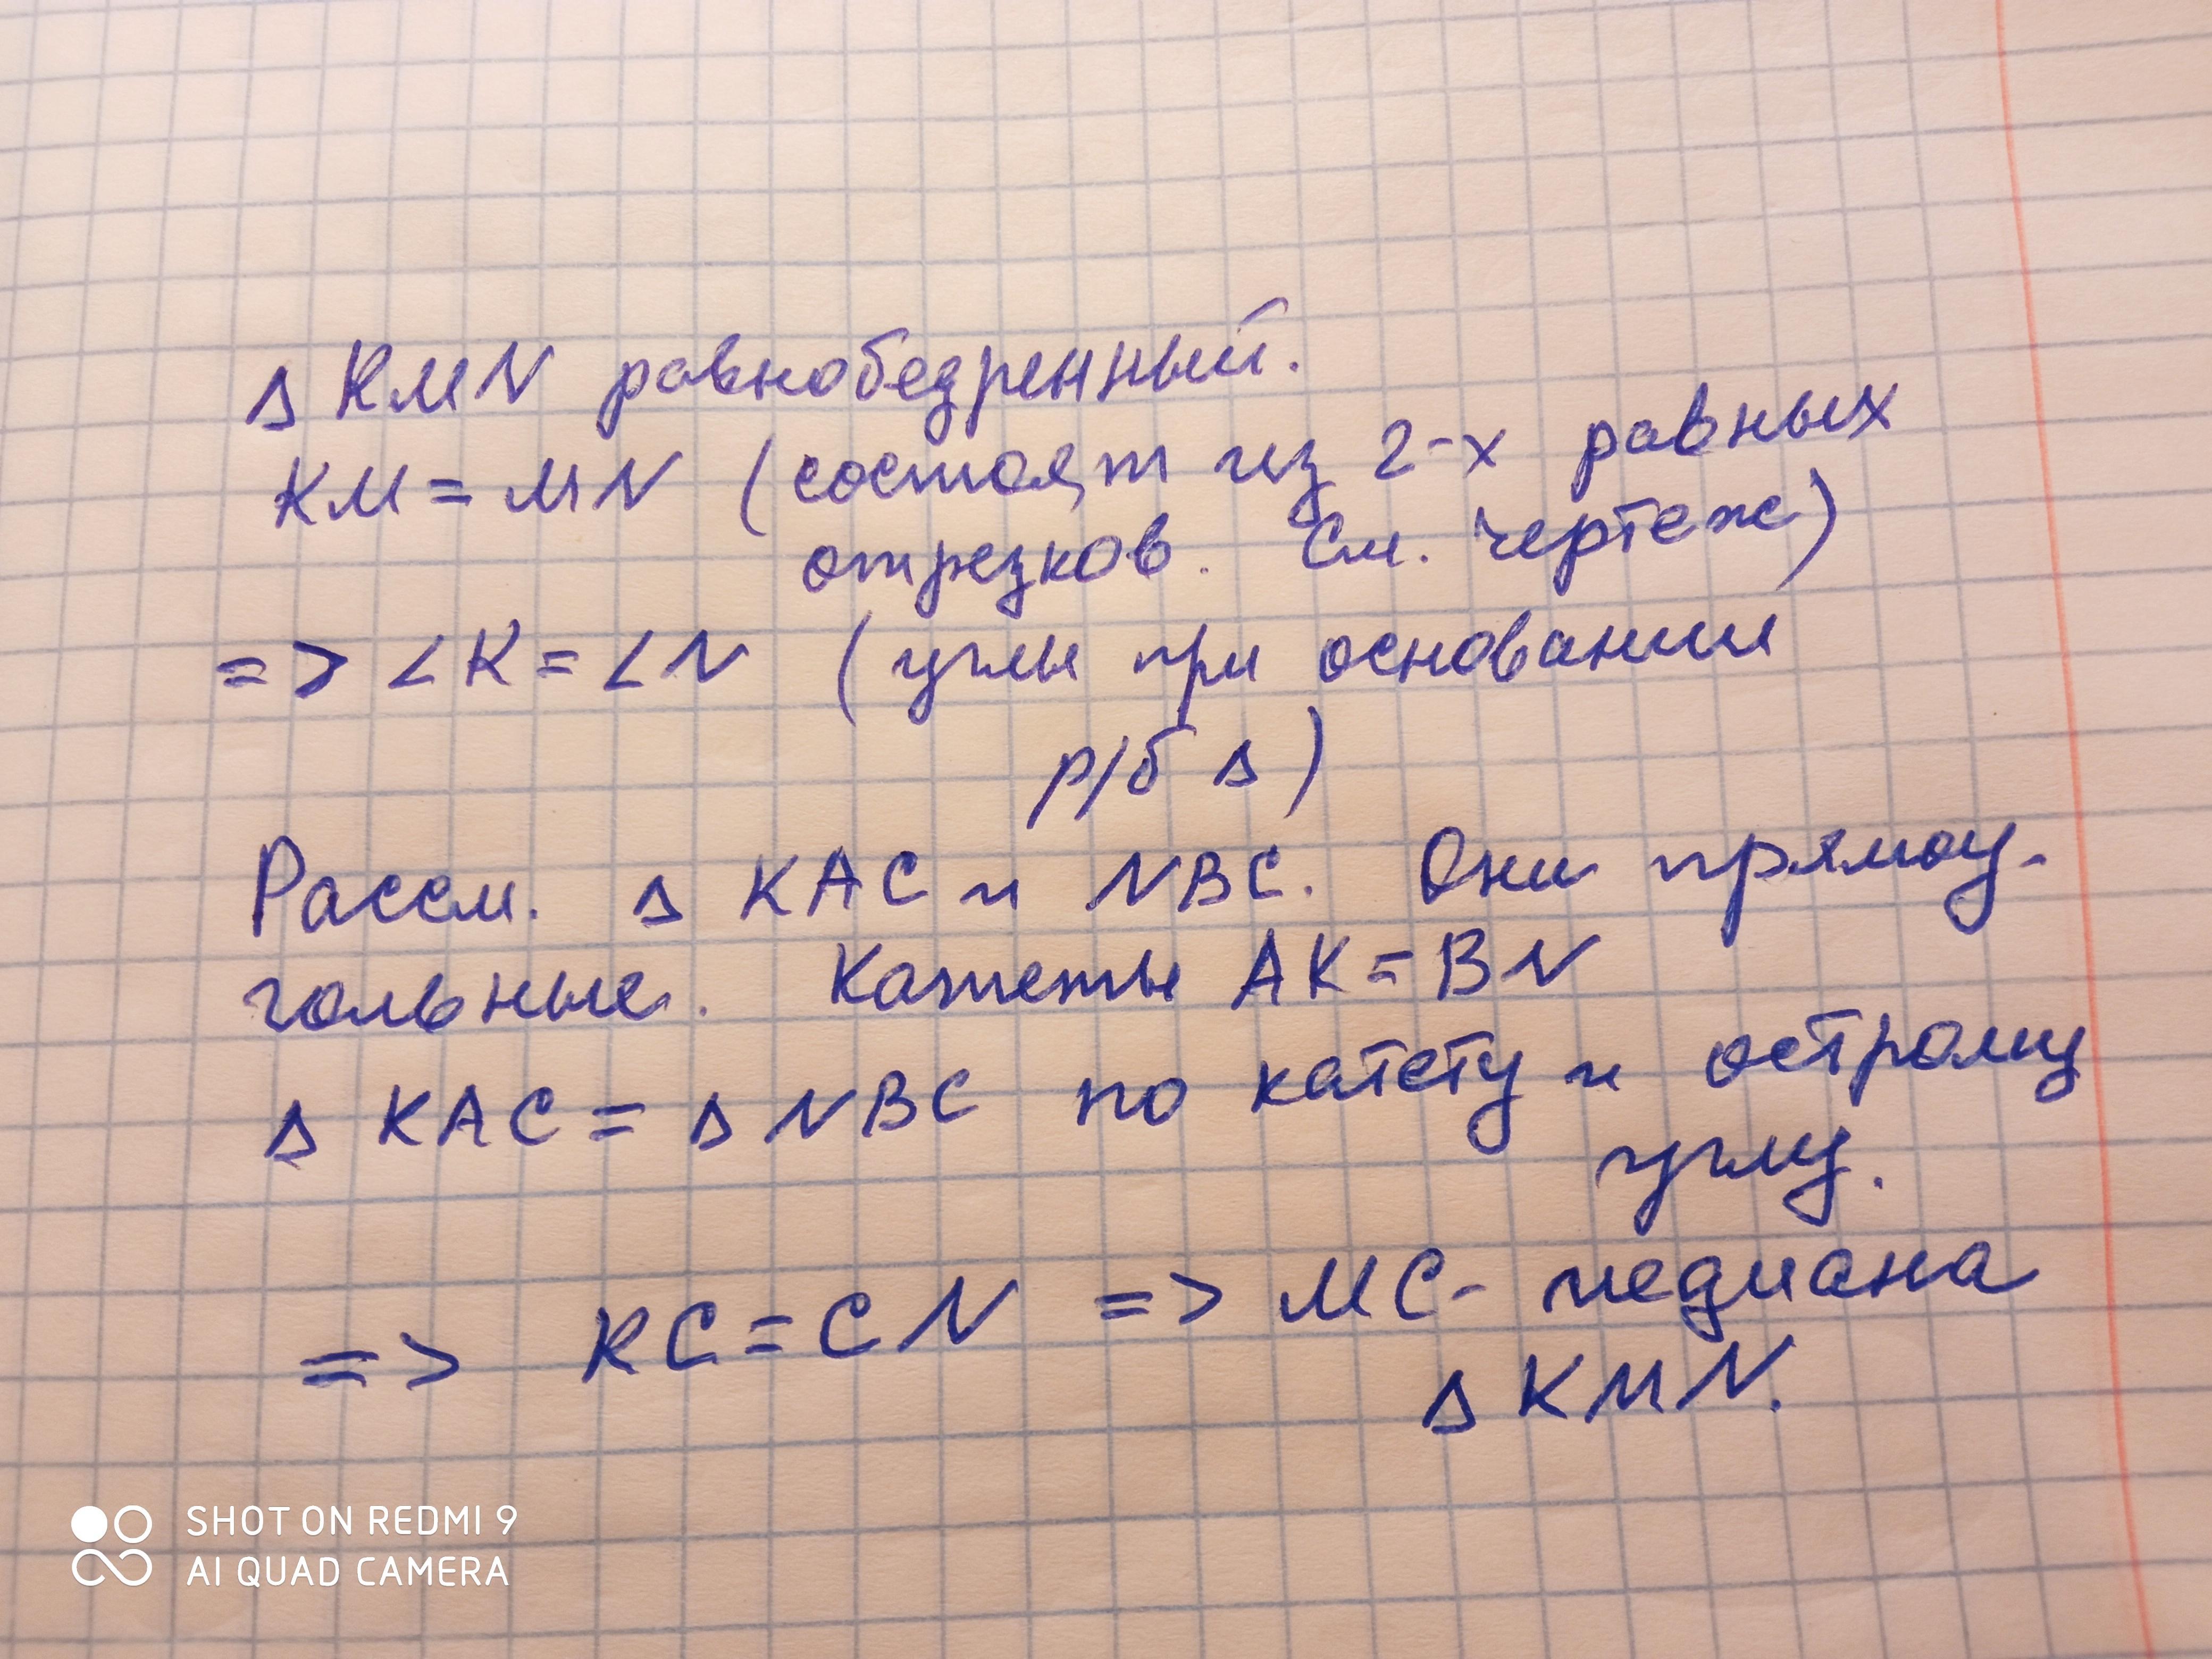 Δ KMN равнобедренный.
KM = MN (состоят из 2-х равных
отрезков. См. чертеж)
=> <K = <N (углы при основании
р/б Δ)
Рассм. Δ KAC и NBC. Они прямоу-
гольные. Катеты AK = BN
Δ KAC = Δ NBC по катету и острому
углу.
=> KC = CN => MC - медиана
Δ KMN.
SHOT ON REDMI 9
AI QUAD CAMERA